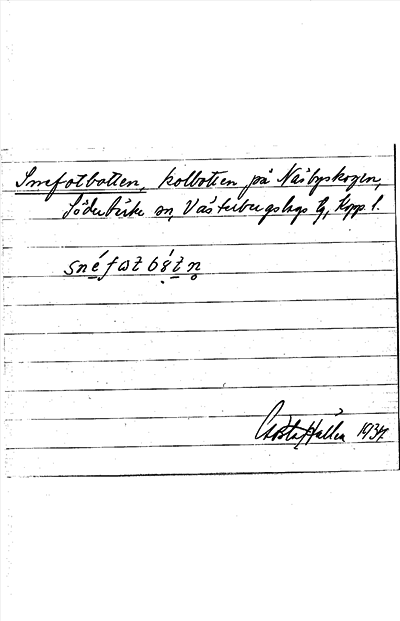 Snefotbotten, kolbotten på Näsbyskogen,
Söderbärke sn, Västerbergslags tg, Kopp. l.
snéfωt bót n̥
Gösta Hallén 1934